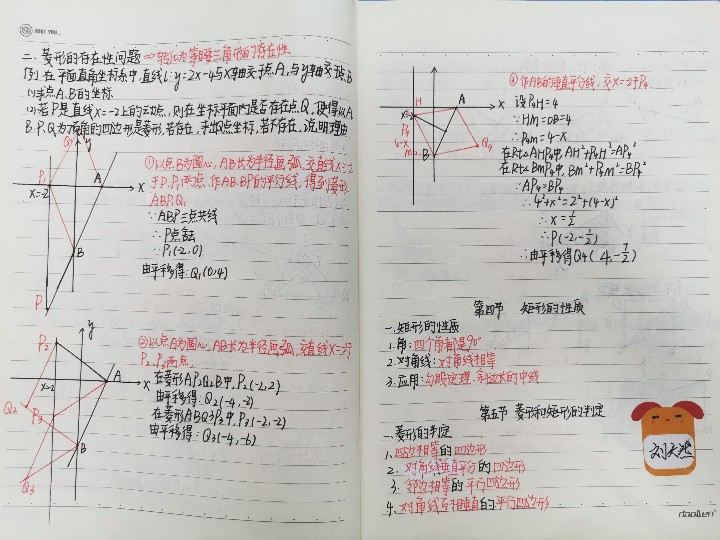 二、菱形的存在性问题⇒转化为等腰三角形的存在性
例 在平面直角坐标系中,直线L:y=2x-4与X轴交于点A,与y轴交于点B
(1)求点A、B的坐标
(2)若P是直线x=-2上的动点,则在坐标平面内是否存在点Q,使得以A、
B、P、Q为顶点的四边形是菱形,若存在,求出Q点坐标,若不存在,说明理由
①以点B为圆心,AB长为半径画弧,交直线x=-2
于P、P1两点,作AB、BP的平行线,得到菱形
ABP1Q1
∵ABP三点共线
∴P点舍去
∵P1(-2,0)
由平移得:Q1(0,4)
P1
Q1
y
x=-2
A
x
B
P
②以点A为圆心,AB长为半径画弧,交直线x=-2于
P2、P3两点,
在菱形AP2Q2B中,P2(-2,2)
由平移得:Q2(-4,-2)
在菱形ABQ3P3中,P3(-2,-2)
由平移得:Q3(-4,-6)
y
P2
x=-2
A
x
Q2
P3
B
Q3
④作AB的垂直平分线,交x=-2于P4
设P4H=4
∵HM=OB=4
∴P4M=4-x
在Rt△AHP4中,AH²+P4H²=AP4²
在Rt△BMP4中,BM²+P4M²=BP4²
∵AP4=BP4
∴4²+x²=2²+(4-x)²
∴x=1/2
∴P(-2,-1/2)
∴由平移得Q4(4,-7/2)
H
A
x
x=-2
P4
4-x
M
B
Q4
第四节 矩形的性质
一、矩形的性质
1.角:四个角都是90°
2.对角线:对角线相等
3.应用:勾股定理、斜边长的中线
第五节 菱形和矩形的判定
一、菱形的判定
1.四边相等的四边形
2.对角线垂直平分的四边形
3.邻边相等的平行四边形
4.对角线互相垂直的平行四边形
刘天然